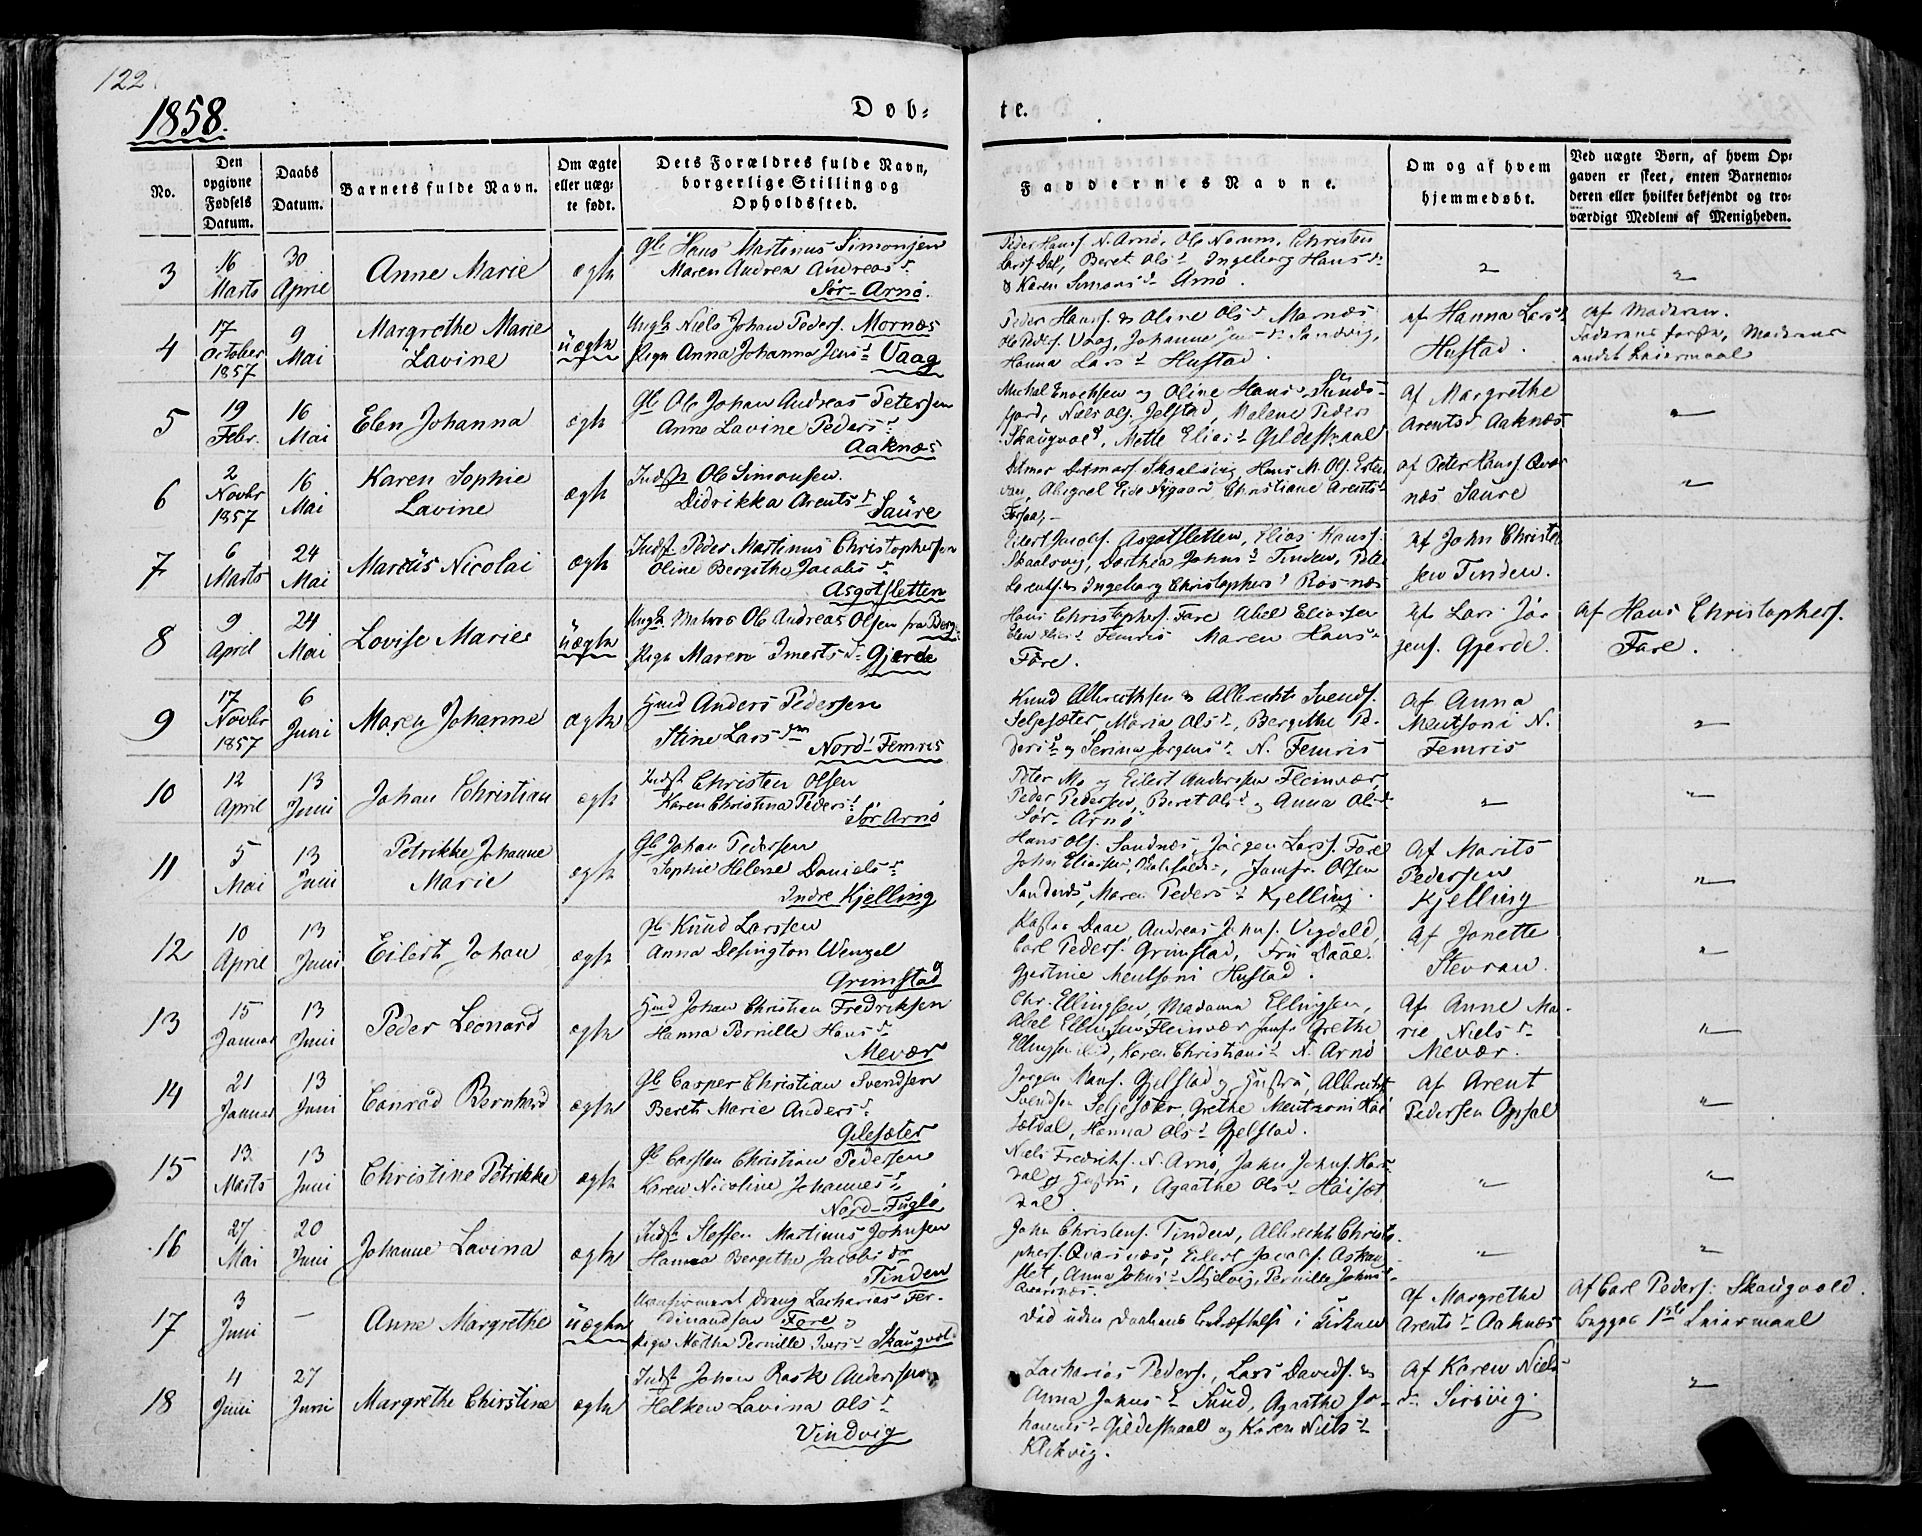 122
1858.
Døb-
te.
No.
Den opgivne Fødsels Datum.
Daabs Datum.
Barnets fulde Navn.
Om ægte eller uægte født.
Dets Forældres fulde Navn, borgerlige Stilling og Opholdssted.
Faddernes Navne.
Om og af hvem hjemmedøbt.
Ved uægte Børn, af hvem Opgaven er skeet, enten Barnemoderen eller hvilket bekjendt og troværdigt Medlem af Menigheden.
3
16 Marts
30 April
Anne Marie
ægte
Gb Hans Martinus Simonsen
Maren Andrea Andreas
Sør-Arnø.
Peder Hanss. N. Arnø, Ole Christen
Larss Dal, Beret Ols Ingeborg Hans
& Karen Simons Arnø.
4
17 October 1857
9 Mai
Margrethe Marie
Lavine
uægte
Ungk Niels Johan Peders. Mornæs
Pign Anna Johanna Jens Vaag
Peder Hanss. & Oline Ols Mornæs
Ole Peders. Vaag, Johanna Sandvig,
Hanna Lars Hustad.
af Hanna Lars
Hustad.
af Moderen.
Faderens første, Moderens
andet Leiermaal
5
19 Febr.
16 Mai
Elen Johanna
ægte
Gb Ole Johan Andreas Petersen
Anne Lavine Peders
Aaknæs
Michal Enochsen og Oline Hans Sunds-
fjord, Niels Ols. Jelstad, Malene Peders
Skaugvold, Mette Elias Gildeskaal
af Margrethe
Arents Aaknæs
6
2 Novbr 1857
16 Mai
Karen Sophie
Lavine
ægte
Inds Ole Simonsen
Didrikka Arents
Saure
Ditmar Ditmars. Skaalsvig, Hans M. Ols.
Abigael Eide Nygaard Christiane Arents
Forsaa,
af Peter Hanss. Qvar
næs Saure
7
6 Marts
24 Mai
Marcus Nicolai
ægte
Inds Peder Martinus Christophersen
Oline Bergithe Jacobs
Asgotsletten
Eilert Jacobs. Asgotsletten, Elias Hanss.
Skaalsvig, Dorthea Johns Tinden, Peter
Ingeborg Christophers Rosnæs
af John Christen
sen Tinden.
8
9 April
24 Mai
Lovise Marie
uægte
Ungk. Matros Ole Andreas Olsen fra Berg
Pign Maren Imerts Gjerde
Hans Christophers. Fore Abel Eliassen
Elen Femris Maren Hans
Fore.
af Lars Jør
gens. Gjerde.
af Hans Christophers.
Fore.
9
17 Novbr 1857
6 Juni
Maren Johanne
ægte
Hmd Anders Pedersen
Stine Lars
Nord Femris
Knud Albrethsen & Albrecht Svends.
Seljesæter, Maria Ols, Bergithe Pe-
ders og Serina Jørgens N. Femris
af Anna
Mentsoni N.
Femris
10
12 April
13 Juni
Johan Christian
ægte
Inds Christen Olsen
Karen Christina Peders
Sør Arnø
Peter Mo og Eilert Anderssen Fleinvær,
Peder Pedersen, Beret Ols og Anna Ols
Sør-Arnø
11
5 Mai
13 Juni
Petrikke Johanne
Marie
ægte
Gb Johan Pedersen
Sophie Helene Daniels
Indre Kjelling
Hans Ols. Sandnæs, Jørgen Larss. Fore
John Eliassen, Jomfr. Olsen
Sandnæs, Maren Peders Kjelling.
af Marits
Pedersen
Kjelling
12
10 April
13 Juni
Eilert Johan
ægte
Gb Knud Larssen
Anna Desington Wenzel
Grimstad
Pastor Daae, Andreas Johns. Vigdeld,
Carl Peders. Grimstad, Fru Daae.
Gjertine Mentsoni Hustad.
af Jonette
Stevran.
13
15 Januar
13 Juni
Peder Leonard
ægte
Hmd Johan Christian Fredriksen
Hanna Pernille Hans
Mevær
Chr. Ellingsen, Madame Ellingsen,
Abel Ellingsen Fleinvær Jomfr Grethe
Karen Christians N. Arnø
af Anne Ma-
rie Niels
Mevær.
14
21 Januar
13 Juni
Conrad Bernhard
ægte
Gb Casper Christian Svendsen
Berets Marie Anders
Gilesæter
Jørgen Hans. Gjelstad og Hustru, Albrecht
Svendsen Seljesæter, Grethe Mentzoni Høi
sætdal, Hanna Ols Gjelstad.
af Arent
Pedersen Opsal
15
13 Marts
13 Juni
Christine Petrikke
ægte
Gb Carsten Christian Pedersen
Karen Nicoline Johannes
Nord-Fuglø
Niels Fredriks. N. Arnø, John Johns. Hor
dal og Hustru, Agaathe Ols Høisæt
dal.
16
27 Mai
20 Juni
Johanne Lavina
ægte
Inds Steffen Martinus Johnsen
Hanna Bergithe Jacobs dr
Tinden
John Christens. Tinden, Albrecht Christo-
phers. Qvarsnæs, Eilert Jacobs. Askaus
slet, Anna Johns Skjelvig, Pernille Johns
Qvarsnæs.
17
3 Juni
–
Anne Margrethe
uægte
Ukonfirmeret dreng Zacharias Fer-
dinandsen Fore &
Pign Martha Pernille Ivers Skaugvold
Død uden Daabens bekræftelse i Kirken
af Margrethe
Arents Aaknæs
af Carl Peders. Skaugvold.
begges 1ste Leiermaal
18
4 Juni
27 Juni
Margrethe Christine
ægte
Inds Johan Rask Anderssen
Helken Lavina Ols
Vindvig
Zacharias Peders., Lars Davids. &
Anna Johns Sund, Agathe Jo-
hannes Gildeskaal og Karen Niels
Klikvig.
af Karen Niels
Sørvig.